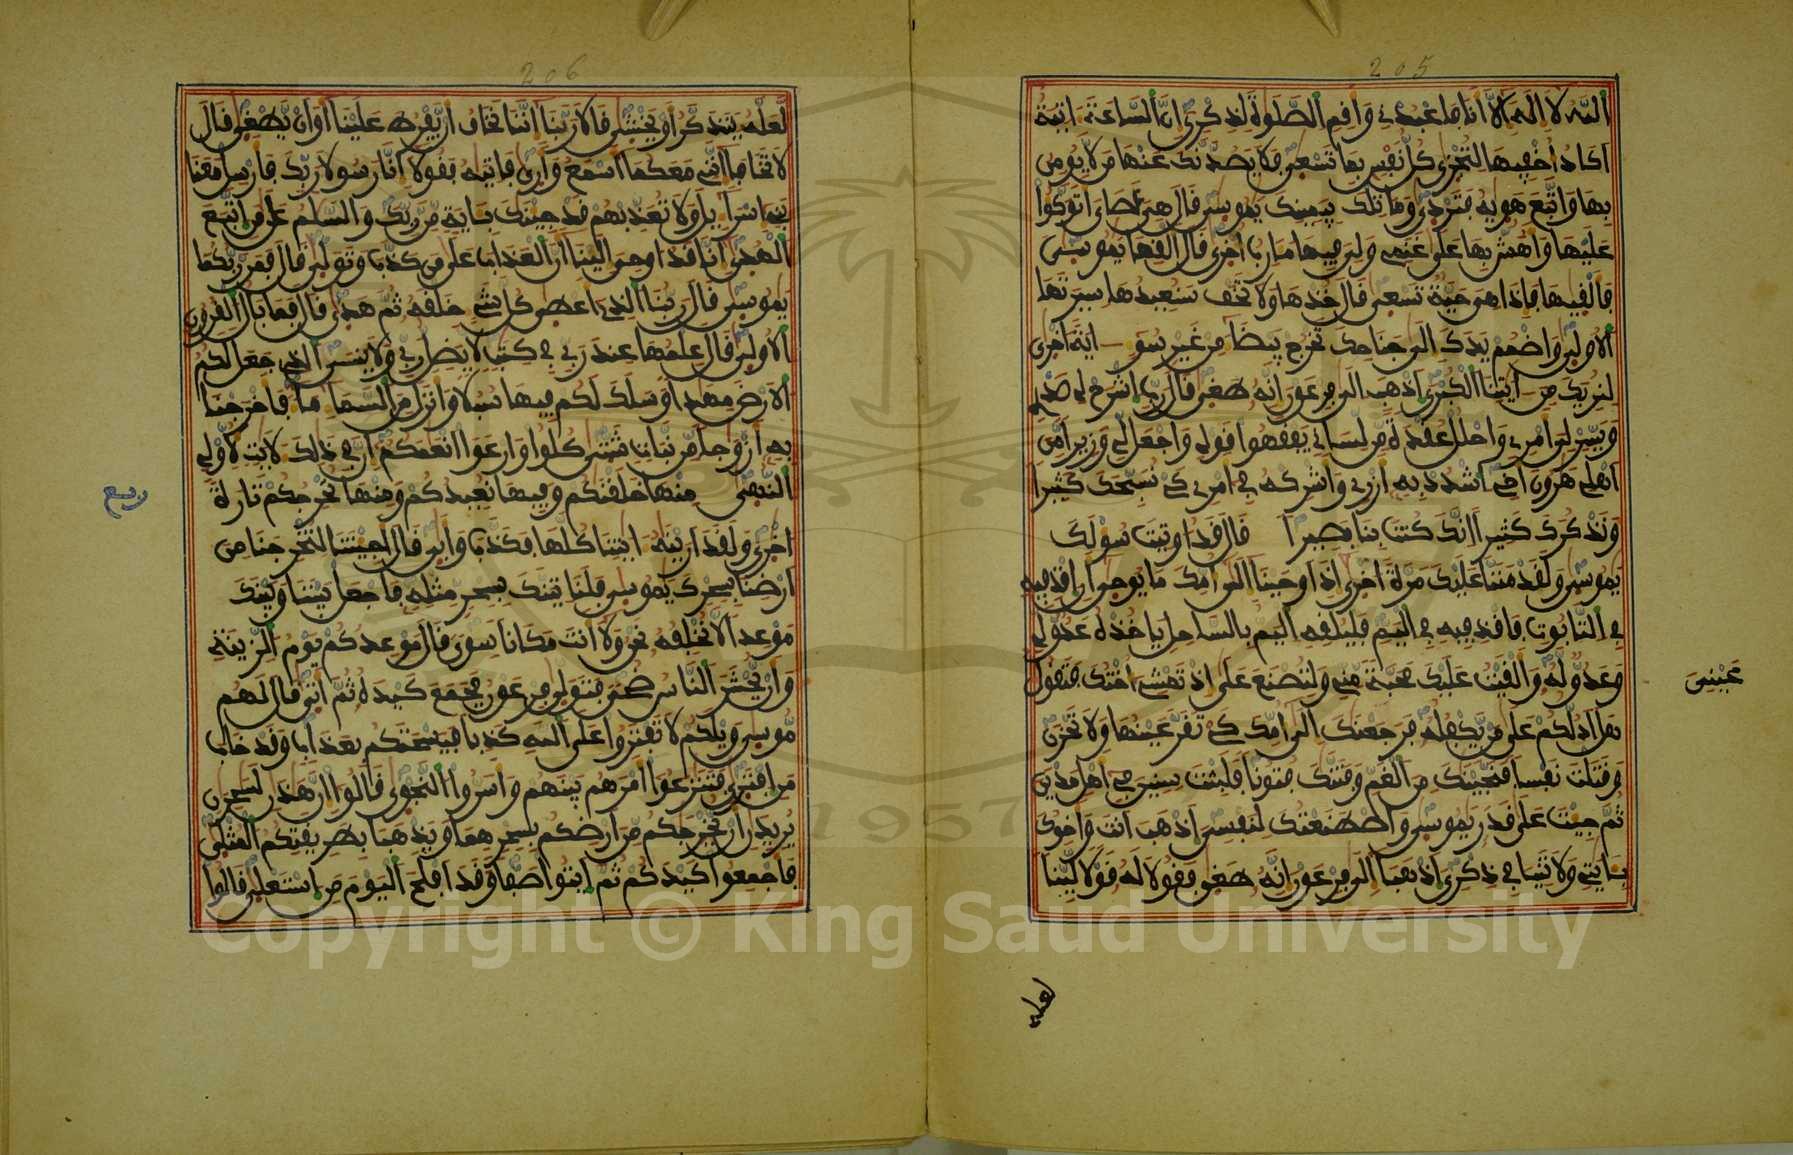 205
الله لا اله الا انا فاعبدني واقم الصلوة لذكري ان الساعة اتية
اكاد اخفيها لتجزى كل نفس بما تسعى فلا يصدنك عنها من لا يومن
بها واتبع هويه فتردى وما تلك بيمينك يموسى قال هي عصاي اتوكوا
عليها واهش بها على غنمي ولي فيها مارب اخرى قال القها يموسى
فالقيها فاذا هي حية تسعى قال خذها ولا تخف سنعيدها سيرتها
الاولى واضمم يدك الى جناحك تخرج بيضا من غير سو اية اخرى
لنريك من ايتنا الكبرى اذهب الى فرعون انه طغى قال رب اشرح لي صدري
ويسر لي امري واحلل عقدة من لساني يفقهوا قولي واجعل لي وزيرا من
اهلي هرون اخي اشدد به ازري واشركه في امري كي نسبحك كثيرا
ونذكرك كثيرا انك كنت بنا بصيرا قال قد اوتيت سولك
يموسى ولقد مننا عليك مرة اخرى اذ اوحينا الى امك ما يوحى ان اقذفيه
في التابوت فاقذفيه في اليم فليلقه اليم بالساحل ياخذه عدو لي
وعدو له والقيت عليك محبة مني ولتصنع على اذ تمشي اختك فتقول
هل ادلكم على من يكفله فرجعنك الى امك كي تقر عينها ولا تحزن
وقتلت نفسا فنجينك من الغم وفتنك فتونا فلبثت سنين في اهل مدين
ثم جيت على قدر يموسى واصطنعتك لنفسي اذهب انت واخوك
بايتي ولا تنيا في ذكري اذهبا الى فرعون انه طغى فقولا له قولا لينا
عيني
لعله
206
لعله يتذكر او يخشى قالا ربنا اننا نخاف ان يفرط علينا او ان يطغى قال
لا تخافا انني معكما اسمع وارى فاتيه فقولا انا رسولا ربك فارسل معنا
بني اسرايل ولا تعذبهم قد جينك باية من ربك والسلم على من اتبع
الهدى انا قد اوحي الينا ان العذاب على من كذب وتولى قال فمن ربكما
يموسى قال ربنا الذي اعطى كل شي خلقه ثم هدى قال فما بال القرون
الاولى قال علمها عند ربي في كتب لا يضل ربي ولا ينسى الذي جعل لكم
الارض مهدا وسلك لكم فيها سبلا وانزل من السما ما فاخرجنا
به ازوجا من نبات شتى كلوا وارعوا انعمكم ان في ذلك لايت لاولي
النهى منها خلقنكم وفيها نعيدكم ومنها نخرجكم تارة
اخرى ولقد ارينه ايتنا كلها فكذب وابى قال اجيتنا لتخرجنا من
ارضنا بسحرك يموسى فلناتينك بسحر مثله فاجعل بيننا وبينك
موعدا لا نخلفه نحن ولا انت مكانا سوى قال موعدكم يوم الزينة
وان يحشر الناس ضحى فتولى فرعون فجمع كيده ثم اتى قال لهم
موسى ويلكم لا تفتروا على الله كذبا فيسحتكم بعذاب وقد خاب
من افترى فتنزعوا امرهم بينهم واسروا النجوى قالوا ان هذن لسحرن
يريدن ان يخرجكم من ارضكم بسحرهما ويذهبا بطريقتكم المثلى
فاجمعوا كيدكم ثم ايتوا صفا وقد افلح اليوم من استعلى قالوا
ربع
1957
Copyright © King Saud University